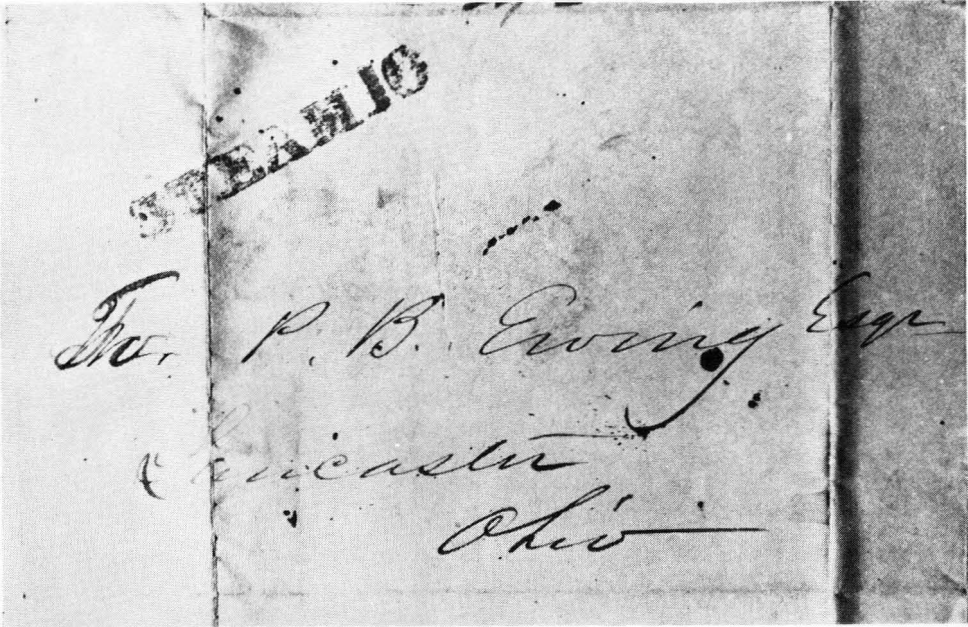 STEAM 10
To. P. B. Ewing Esqr
Lancaster
Ohio